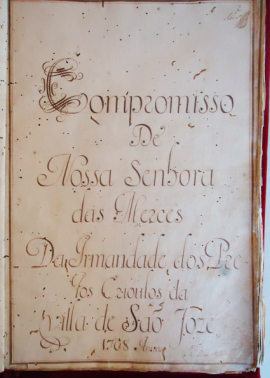 Compromisso
De
Nossa Senhora
das Merces
Da Irmandade dos Pre
tos Crioulos da
Villa de São Joze
1768